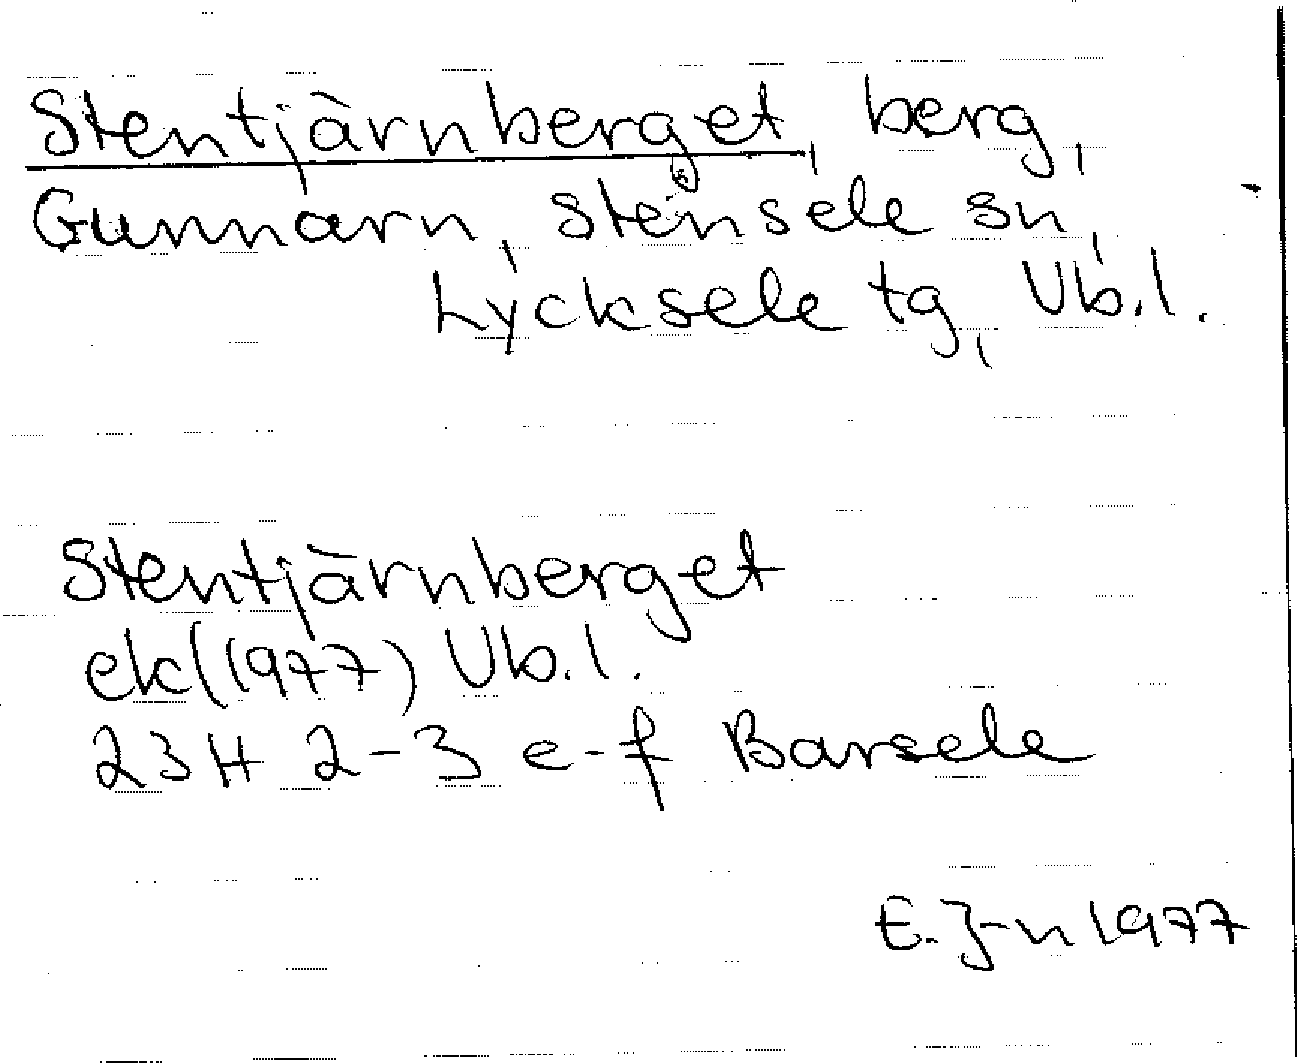 Stentjärnberget, berg,
Gunnarn, Stensele sn,
Lycksele tg, Vb.l.
Stentjärnberget
ek (1977) Vb.l.
23H 2-3 e-f Barsele
E.J-n 1977